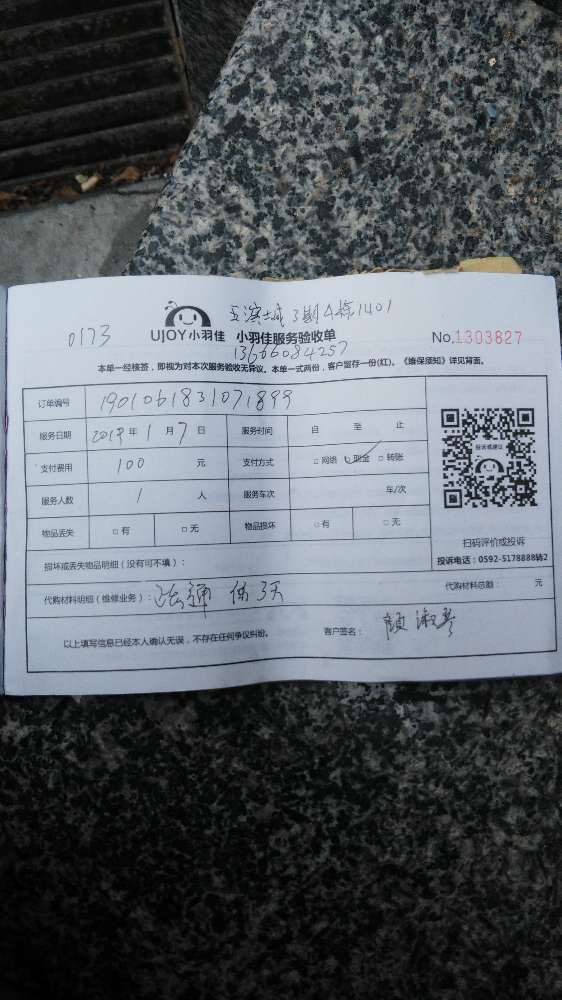 五滨城3期4栋1401
0173 UJOY小羽佳 小羽佳服务验收单 No.1303827
13666084257
本单一经核签，即视为对本次服务验收无异议。本单一式两份，客户留存一份(红)。《维保须知》详见背面。
订单编号 1901061831071899
服务日期 2019年1月7日 服务时间 自 至 止
支付费用 100 元 支付方式 □网络 ☑现金 □转账
服务人数 1 人 服务车次 车/次
物品丢失 □有 □无 物品损坏 □有 □无
投诉或建议
扫码评价或投诉
投诉电话：0592-5178888转2
损坏或丢失物品明细（没有可不填）：
代购材料明细（维修业务）： 通 保3天 代购材料总额： 元
以上填写信息已经本人确认无误，不存在任何争议纠纷。 客户签名： 顾淑琴